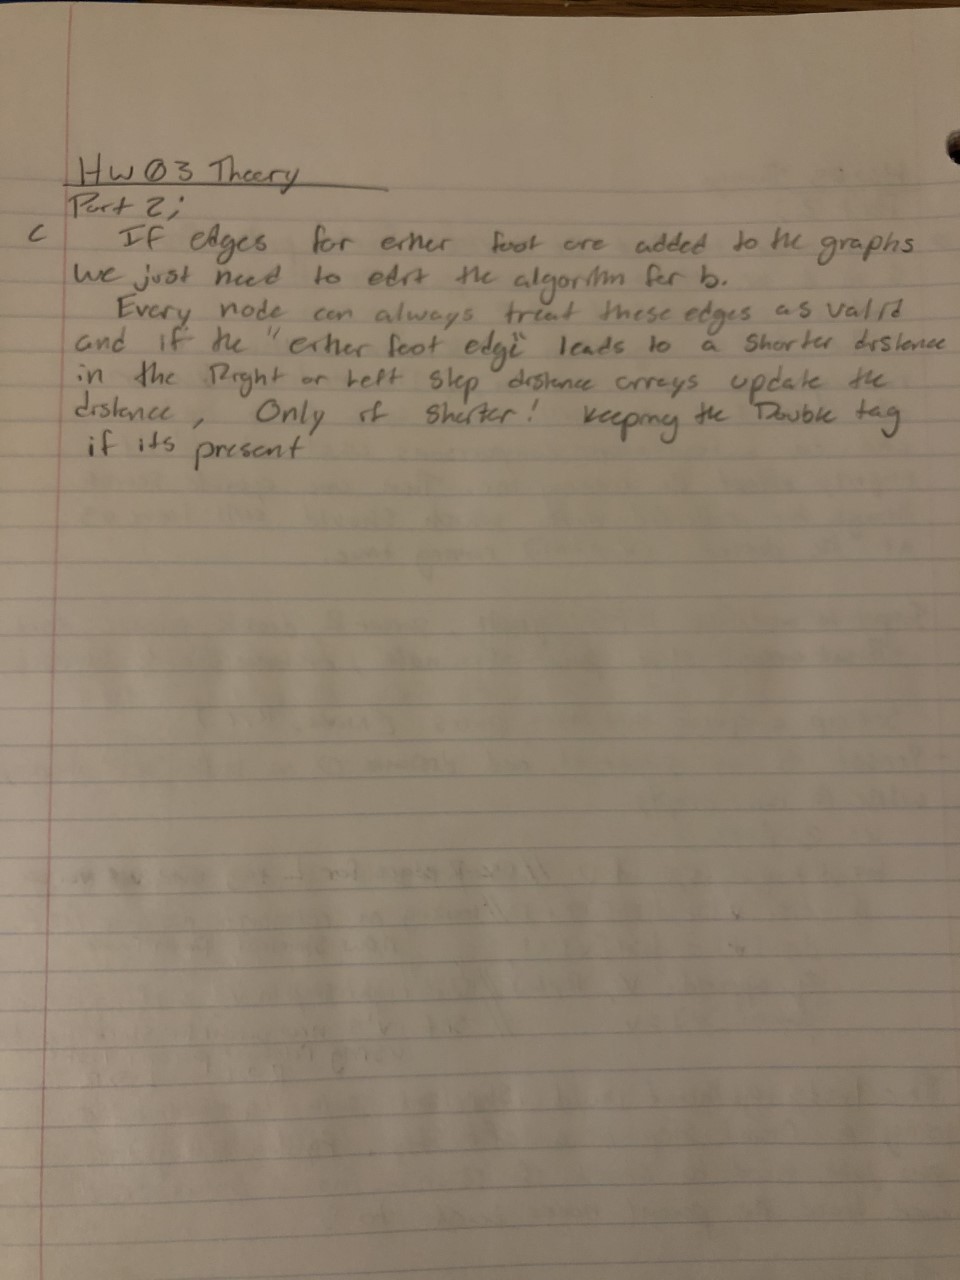 HW03 Theory
Part 2;
c If edges for either foot are added to the graphs
we just need to edit the algorithm for b.
Every node can always treat these edges as valid
and if the "either foot edge" leads to a shorter distance
in the Right or Left Step distance arrays update the
distance, Only if Shorter! keeping the Double tag
if its present